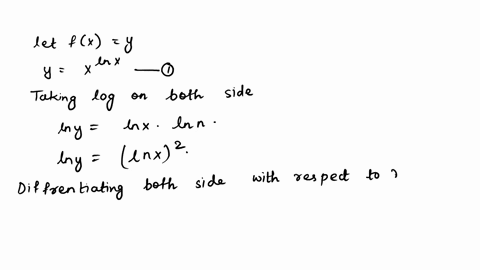 let f(x) = y
y = x^{ln x} —— ①
Taking log on both side
ln y = ln x · ln n ·
ln y = (ln x)^2 ·
Diffrentiating both side with respect to